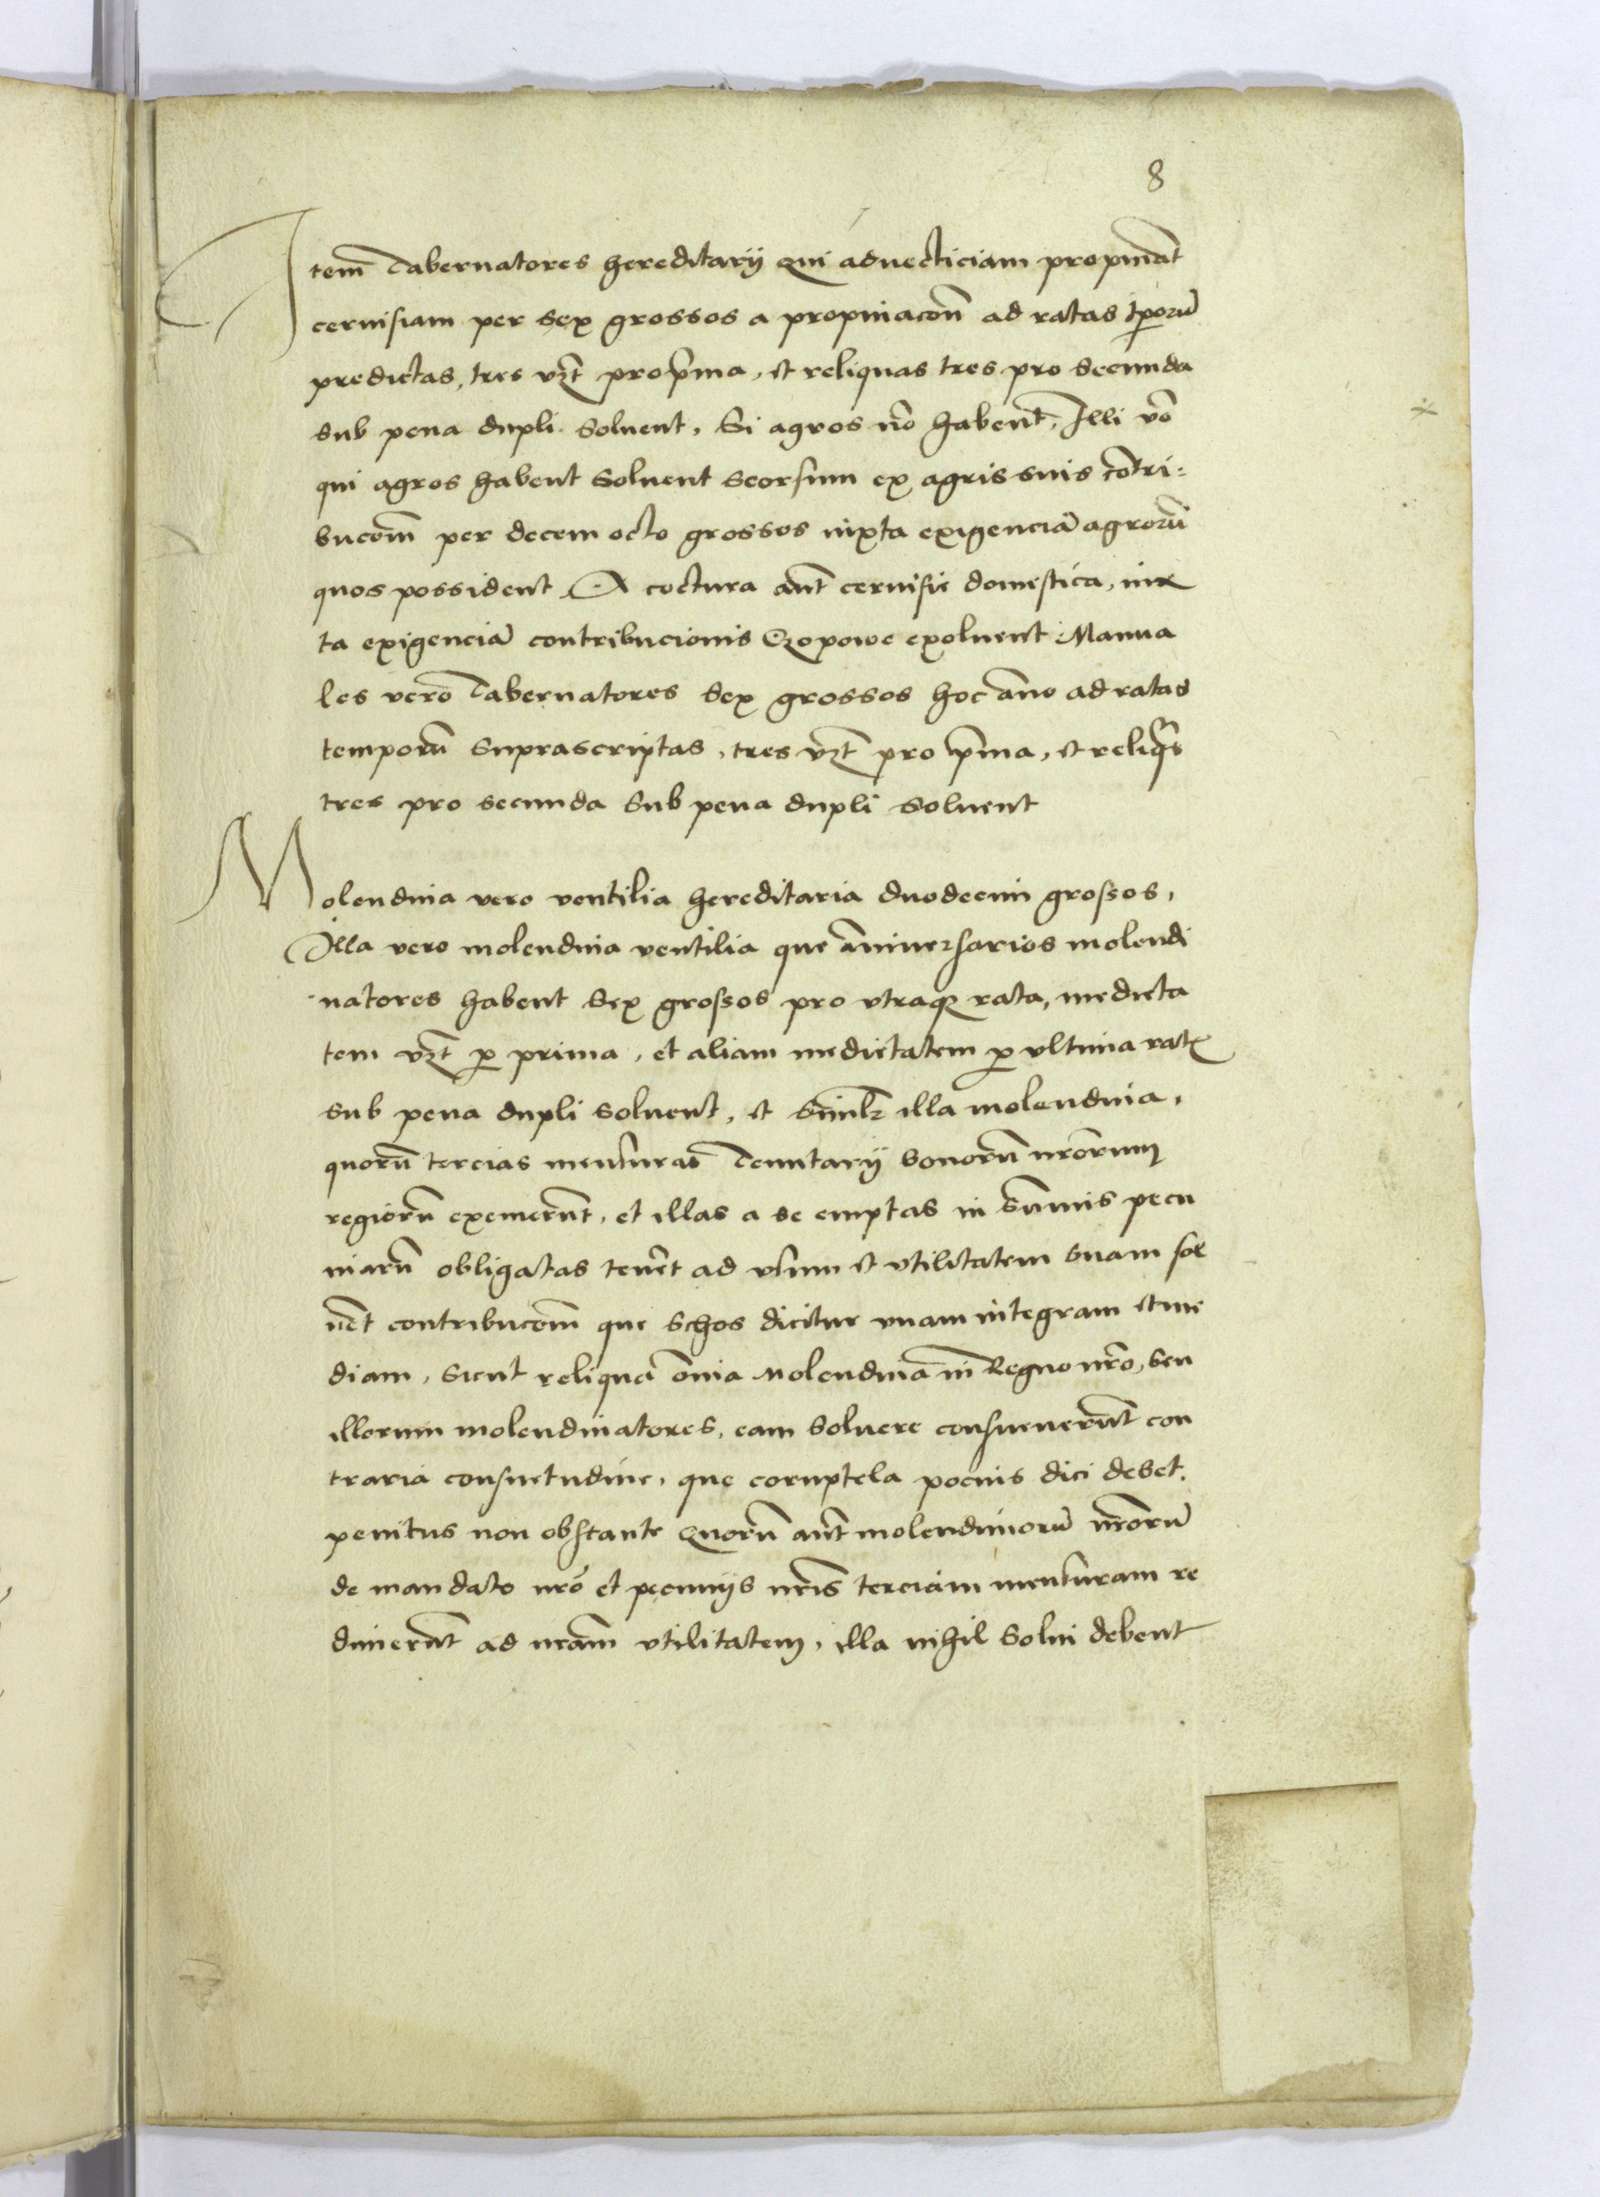 8
Item Tabernatores hereditarij Qui aduecticiam propinãt
ceruisiam per Sex grossos a propinacoñ ad ratas tp̃orũ
predictas, tres vz̃t pro p̃ma, et reliquas tres pro Secunda
sub pena dupli Soluent, Si agros nõ habent, Illi võ
qui agros habent Soluent Seorsum ex agris suis cõtri-
bucõm per decem octo grossos iuxta exigenciã agrorũ
quos possident A coctura aũt ceruisie domestica, iux
ta exigenciã contribucionis Czopowe exoluent Manua
les vero Tabernatores Sex grossos hoc ãno ad ratas
temporũ Suprascriptas, tres vz̃t pro p̃ma, et reliq̃s
tres pro secunda Sub pena dupli Soluent
Molendina vero ventilia hereditaria duodecim grossos,
Illa vero molendina ventilia que ãniuersarios molendi
natores habent Sex grossos pro vtraqꝫ rata, medieta
tem vz̃t ꝑ prima, et aliam medietatem ꝑ vltima rata
sub pena dupli soluent, et Simĩlr illa molendina,
quorũ tercias mensuras Tenutarij bonorũ nr̃orum
regiorũ exemerũt, et illas a se emptas in Sũmis pecu
niarũ obligatas tenẽt ad vsum et vtilitatem suam sol
uẽt contribucõm que Schos dicitur vnam integram et me
diam, Sicut reliqua õnia Molendina in Regno nr̃o, Seu
illorum molendinatores, eam Soluere consueuerũt con
traria consuetudine, que coruptela pocius dici debet,
penitus non obstante Quorũ aũt molendinorũ nr̃orũ
de mandato nr̃o et pecunijs nr̃is terciam mensuram re
dimerũt ad nr̃am vtilitatem, illa nihil Solui debent